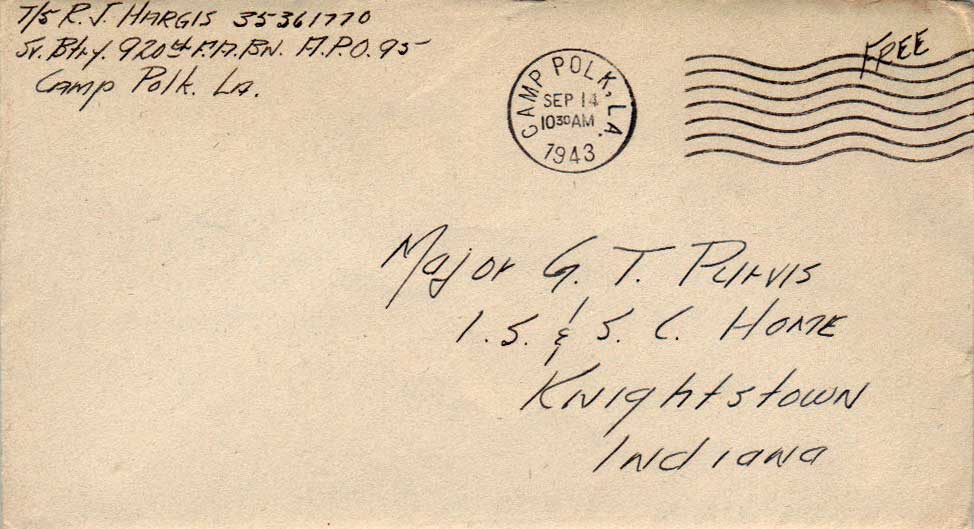 T/5 R. J. HARGIS 35361770
Sv. Btry. 920th F.A. BN. A.P.O. 95
Camp Polk. La.
FREE
CAMP POLK, LA.
SEP 14
1030AM
1943
Major G. T. Purvis
I. S. & S. C. Home
Knightstown
Indiana